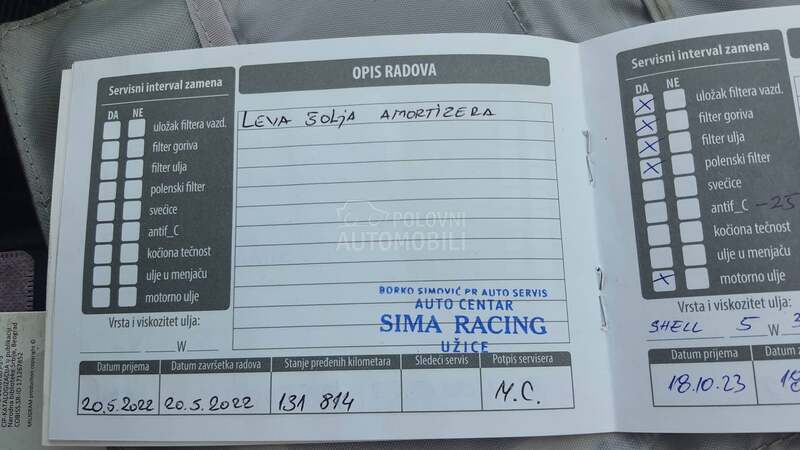 Servisni interval zamena
DA NE
uložak filtera vazd.
filter goriva
filter ulja
polenski filter
svećice
antif_C
kočiona tečnost
ulje u menjaču
motorno ulje
Vrsta i viskozitet ulja:
W
OPIS RADOVA
LEVA ŠOLJA AMORTIZERA
POLOVNI
AUTOMOBILI
BORKO SIMOVIĆ PR AUTO SERVIS
AUTO CENTAR
SIMA RACING
UŽICE
Datum prijema
Datum završetka radova
Stanje pređenih kilometara
Sledeći servis
Potpis servisera
20.5.2022
20.5.2022
131 814
M.C.
CIP-KATALOGIZACIJA u publikaciji
Narodna biblioteka Srbije, Beograd
Servisni interval zamena
DA NE
uložak filtera vazd.
filter goriva
filter ulja
polenski filter
svećice
antif_C -25
kočiona tečnost
ulje u menjaču
motorno ulje
Vrsta i viskozitet ulja:
SHELL 5
Datum prijema
Datum
18.10.23
18